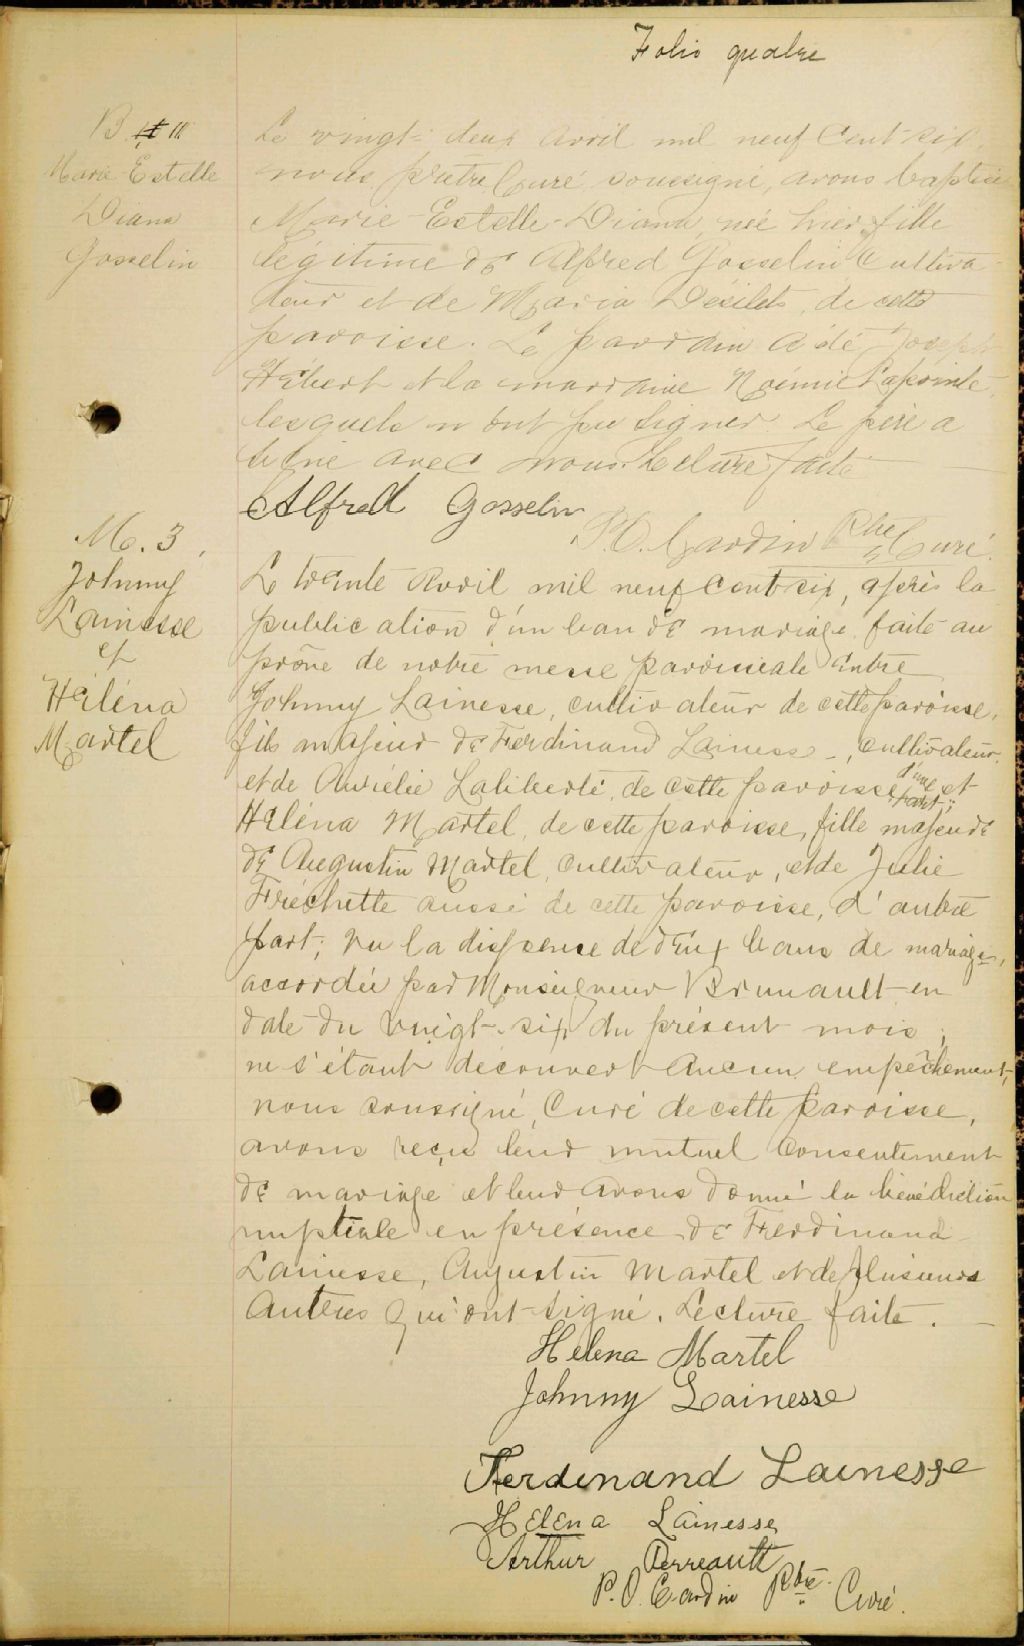 Folio quatre
B 11
Marie Estelle
Diana
Gosselin
Le vingt-deux avril mil neuf cent six,
nous prêtre Curé soussigné, avons baptisé
Marie-Estelle-Diana, née hier, fille
légitime de Alfred Gosselin Cultiva-
teur et de Maria Désilets, de cette
paroisse. Le parrain a été Joseph
Hébert et la marraine Noémie Lapointe,
lesquels n'ont pu signer. Le père a
signé avec nous. Lecture faite
Alfred Gosselin
P.O. Cardin Ptre Curé.
M. 3,
Johnny
Lainesse
et
Héléna
Martel
Le trente Avril mil neuf cent six, après la
publication d'un ban de mariage faite au
prône de notre messe paroissiale entre
Johnny Lainesse, cultivateur de cette paroisse,
fils majeur de Ferdinand Lainesse, cultivateur,
et de Aurélie Laliberté, de cette paroisse, d'une part; et
Héléna Martel, de cette paroisse, fille majeure
de Augustin Martel, cultivateur, et de Julie
Fréchette aussi de cette paroisse, d'autre
part; vu la dispense de deux bans de mariage,
accordée par Monseigneur Brunault en
date du vingt-six du présent mois;
ne s'étant découvert aucun empêchement,
nous soussigné, Curé de cette paroisse,
avons reçu leur mutuel consentement
de mariage et leur avons donné la bénédiction
nuptiale en présence de Ferdinand
Lainesse, Augustin Martel et de plusieurs
autres qui ont signé. Lecture faite.
Helena Martel
Johnny Lainesse
Ferdinand Lainesse
Helena Lainesse
Arthur Perreault
P.O. Cardin Ptre. Curé.